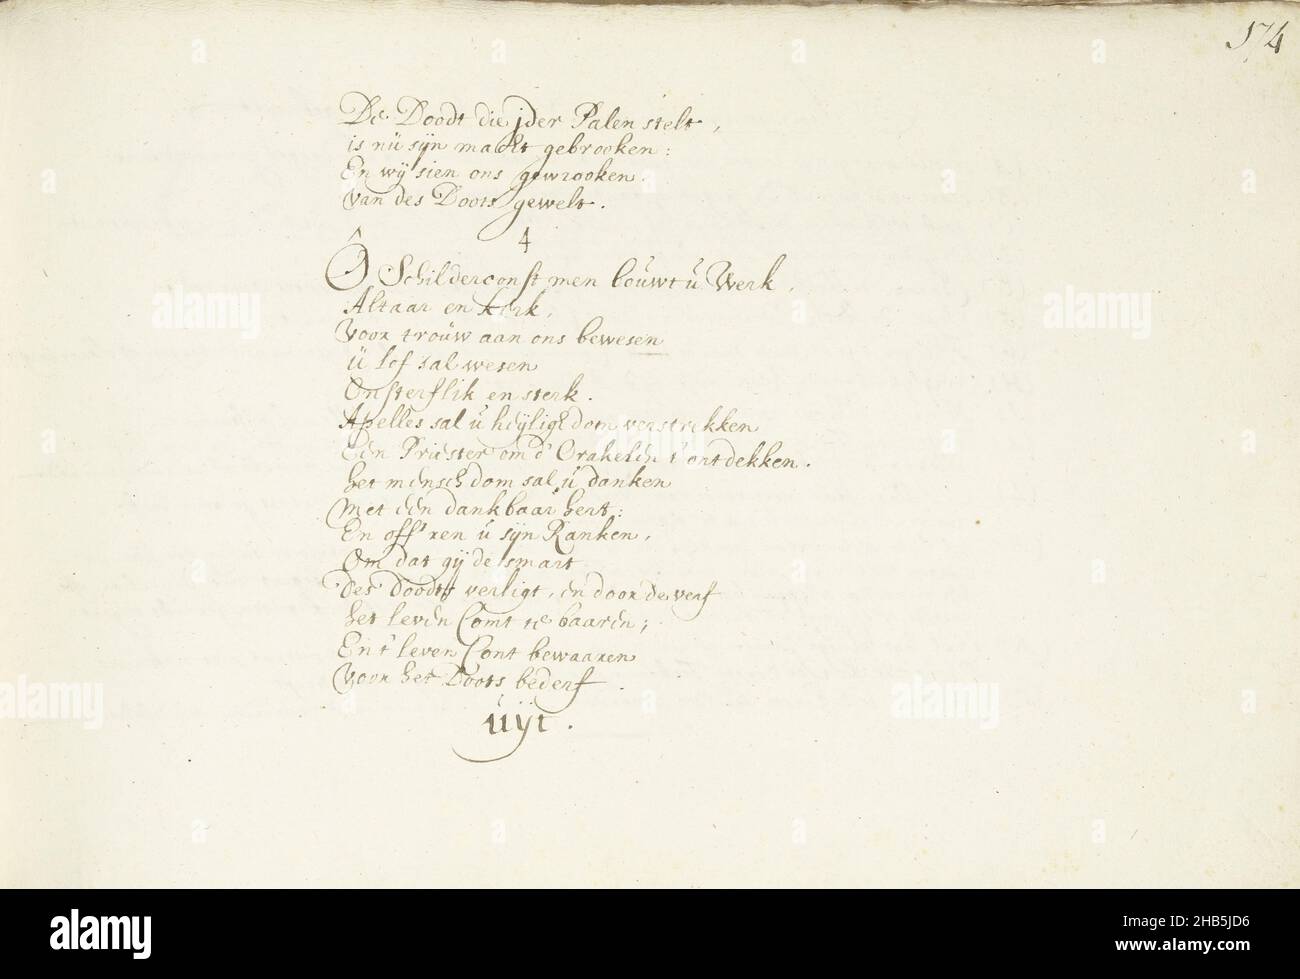 174
De Doodt die jder Palen stelt,
is nú sÿn macht gebrooken:
En wÿ sien ons gewrooken.
van des Doots gewelt.
4
Ô Schilderconst men boúwt ú Werk,
Altaar en kerk,
Voor troúw aan ons bewesen
ú lof sal wesen
Onsterflik en sterk.
Apelles sal ú heÿligdom verstrekken
Een Priester om d' Orakelen t' ontdekken.
het menschdom sal ú danken
Met een dankbaar hert:
En off'ren ú sÿn Ranken,
Om dat gÿ de smart
des doodts verligt, en door de verf
het leven Comt te baaren;
En t' leven Cont bewaaren
Voor het Doots bederf.
úÿt.
alamy
Image ID: 2HB5JD6
www.alamy.com